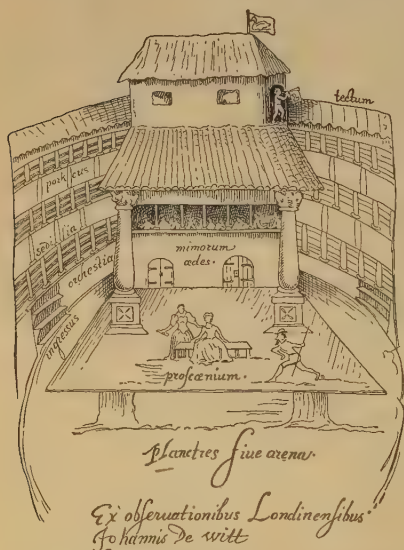 tectum
porticus
sedilia
orchestra
mimorum
ædes.
ingressus
proſcænium.
planctres ſiue arena.
Ex obſeruationibus Londinenſibus
Johannis De witt